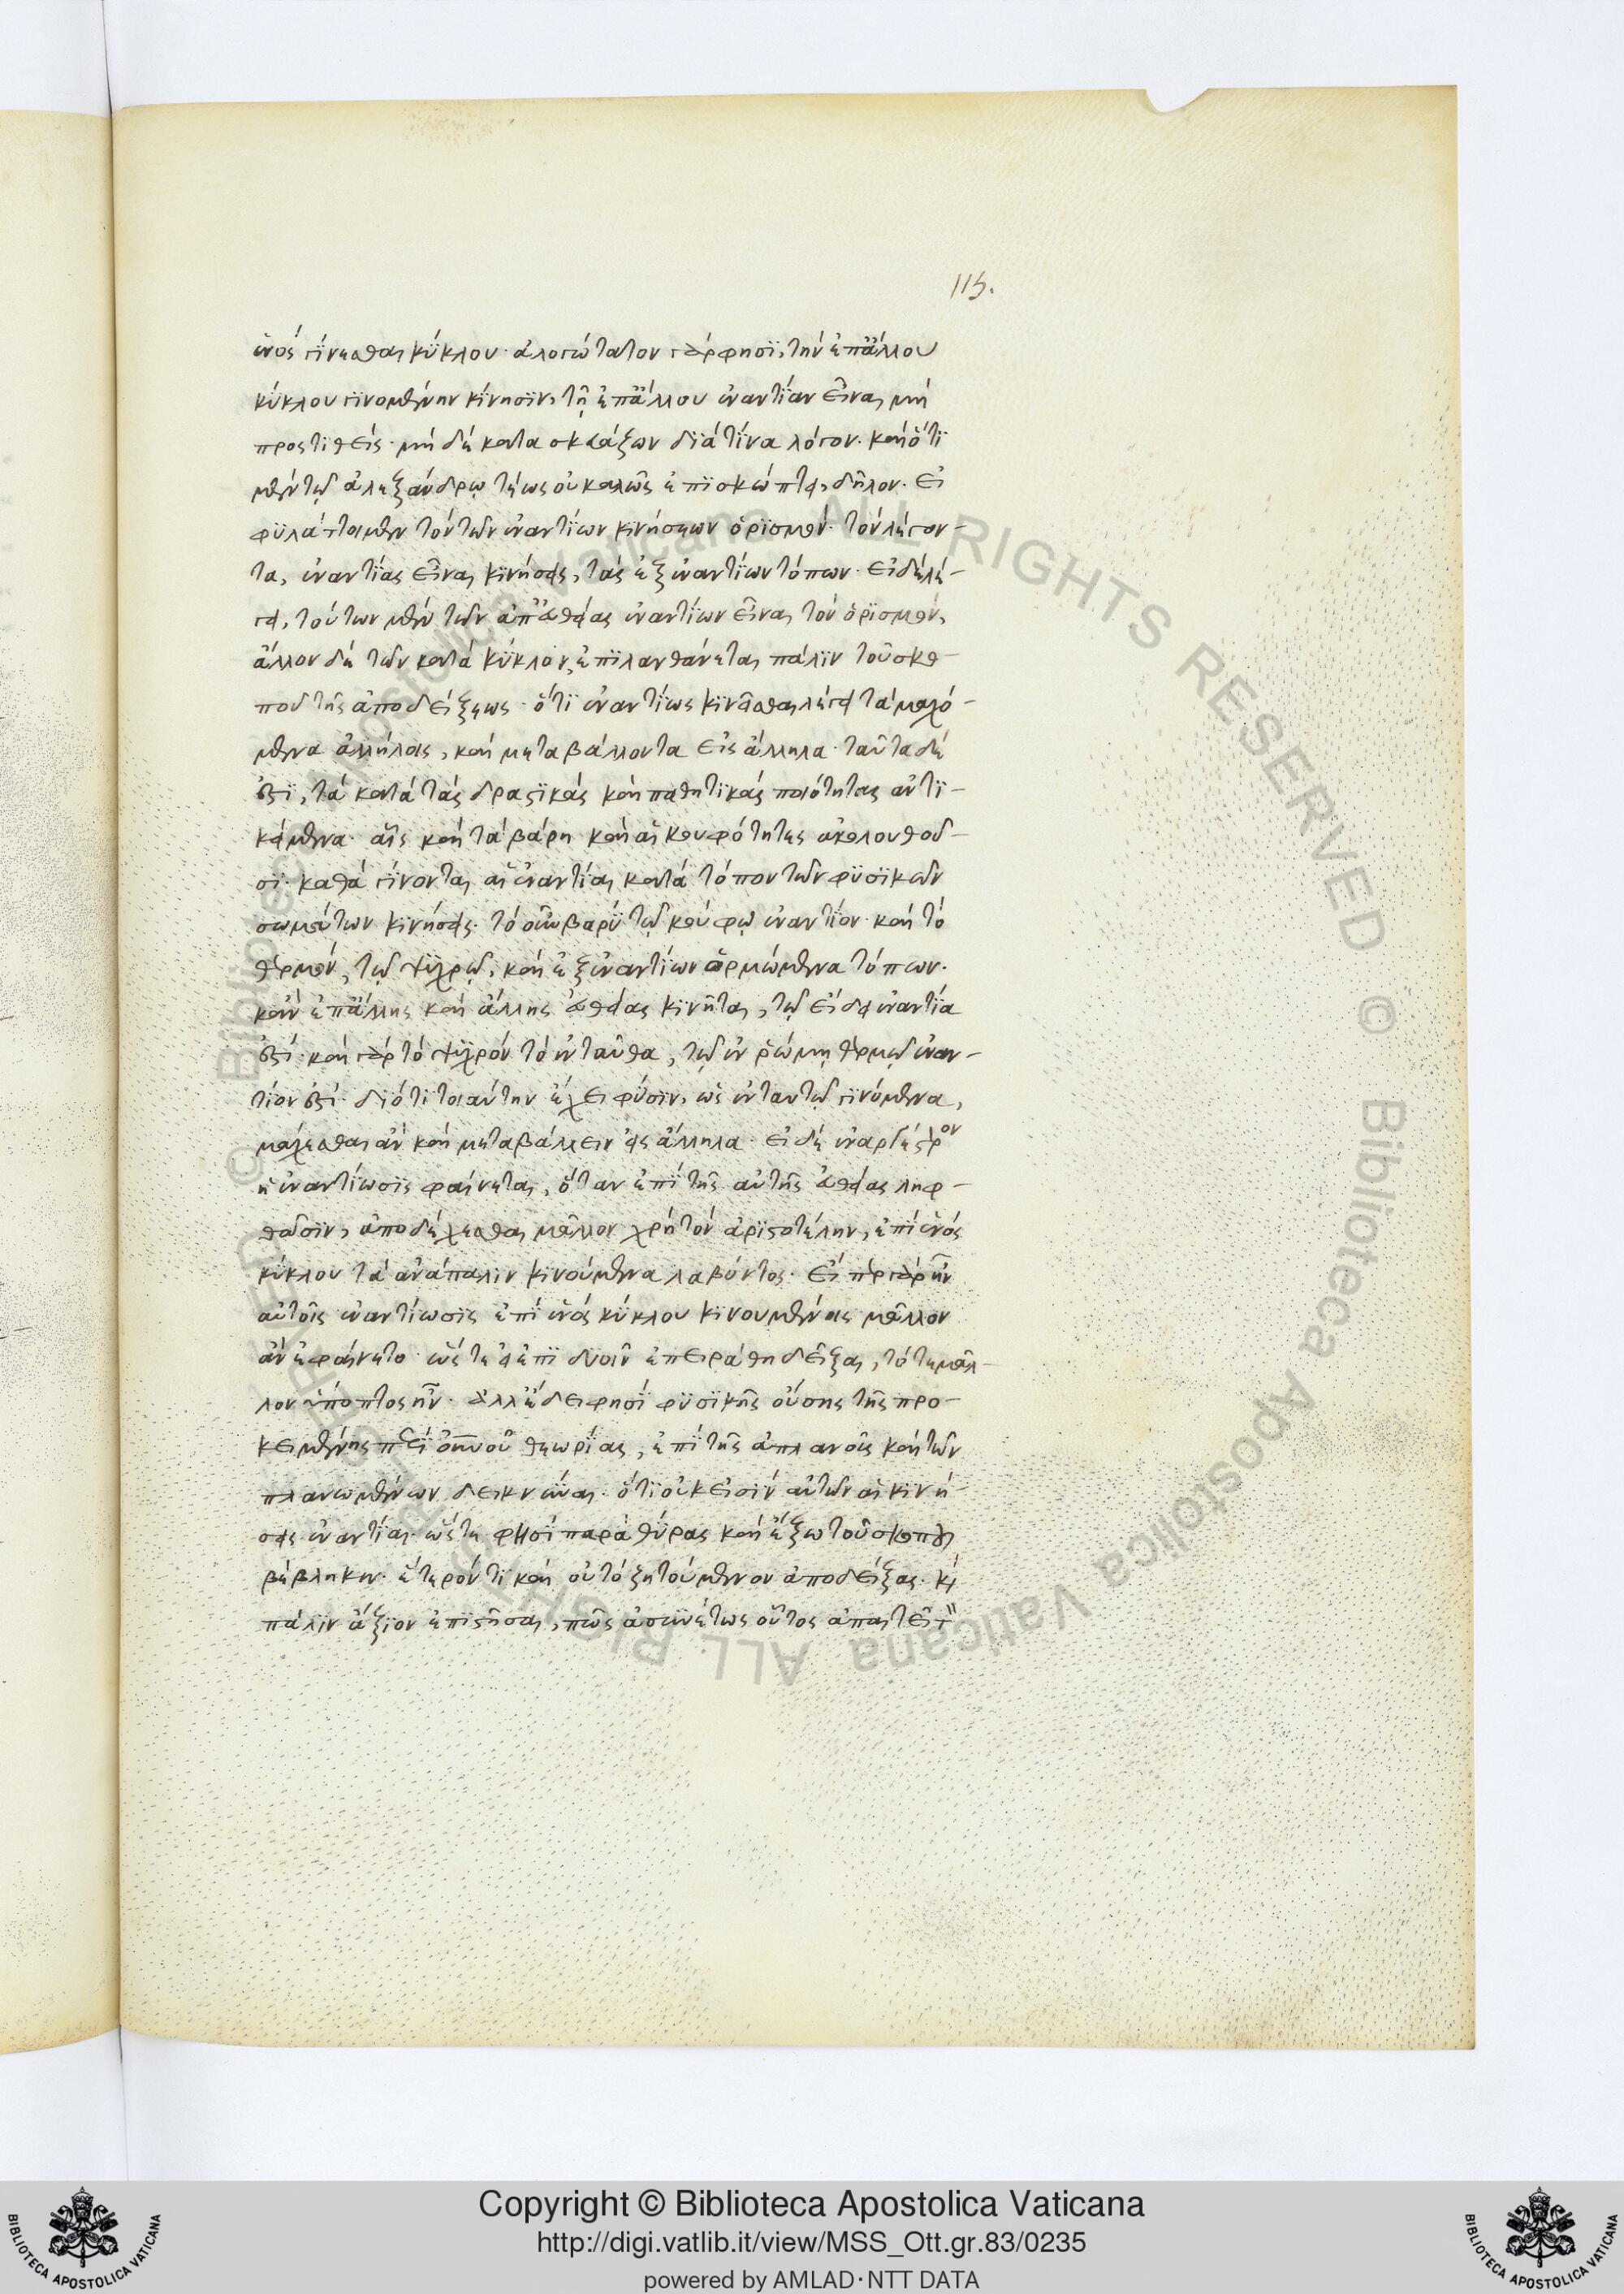 115.
ἑνὸς γίνεσθαι κύκλου· ἀλογώτατον γάρ φησι, τὴν ἐπ' ἄλλου
κύκλου γινομένην κίνησιν, τῇ ἐπ' ἄλλου ἐναντίαν εἶναι μὴ
προστιθεὶς· μὴ δὲ κατασκευάζων διὰ τίνα λόγον· καὶ ὅτι
μὲν τῷ ἀλεξάνδρῳ τέως οὐ καλῶς ἐπισκώπτει, δῆλον· εἰ
φυλάττοιμεν τὸν τῶν ἐναντίων κινήσεων ὁρισμόν· τὸν λέγον-
τα, ἐναντίας εἶναι κινήσεις, τὰς ἐξ ἐναντίων τόπων· εἰ δὲ λέ-
γει, τούτων μὲν τῶν ἀπ' εὐθείας ἐναντίων εἶναι τὸν ὁρισμὸν,
ἄλλον δὲ τῶν κατὰ κύκλον, ἐπιλανθάνεται πάλιν τοῦ σκο-
ποῦ τῆς ἀποδείξεως· ὅτι ἐναντίως κινεῖσθαι λέγει τὰ μαχό-
μενα ἀλλήλοις, καὶ μεταβάλλοντα εἰς ἄλληλα· ταῦτα δέ
ἐστι, τὰ κατὰ τὰς δραστικὰς καὶ παθητικὰς ποιότητας ἀντι-
κείμενα· αἷς καὶ τὰ βάρη καὶ αἱ κουφότητες ἀκολουθοῦ-
σι· καθὰ γίνονται αἱ ἐναντίαι κατὰ τόπον τῶν φυσικῶν
σωμάτων κινήσεις· τὸ οὖν βαρὺ τῷ κούφῳ ἐναντίον· καὶ τὸ
θερμὸν, τῷ ψυχρῷ, καὶ ἐξ ἐναντίων ὁρμώμενα τόπων·
κἂν ἐπ' ἄλλης καὶ ἄλλης εὐθείας κινῆται, τῷ εἴδει ἐναντία
ἐστί· καὶ γὰρ τὸ ψυχρὸν τὸ ἐνταῦθα, τῷ ἐν ῥώμῃ θερμῷ ἐναν-
τίον ἐστί· διότι τοιαύτην ἔχει φύσιν, ὡς ἐν ταυτῷ γινόμενα,
μάχεσθαι ἂν καὶ μεταβάλλειν εἰς ἄλληλα· εἰ δὲ ἐναργέστερον
ἡ ἐναντίωσις φαίνεται, ὅταν ἐπὶ τῆς αὐτῆς εὐθείας ληφ-
θῶσιν, ἀποδέχεσθαι μᾶλλον χρὴ τὸν ἀριστοτέλην, ἐπὶ ἑνὸς
κύκλου τὰ ἀνάπαλιν κινούμενα λαβόντος· εἴπερ γὰρ ἦν
αὐτοῖς ἐναντίωσις ἐπὶ ἑνὸς κύκλου κινουμένοις μᾶλλον
ἂν ἐφαίνετο· ὥστε εἰ ἐπὶ δυοῖν ἐπειράθη δεῖξαι, τότε μᾶλ-
λον ὕποπτος ἦν· ἀλλ' ἔδει φησὶ φυσικῆς οὔσης τῆς προ-
κειμένης περὶ οὐρανοῦ θεωρίας, ἐπὶ τῆς ἀπλανοῦς καὶ τῶν
πλανωμένων δεικνύναι· ὅτι οὐκ εἰσὶν αὐτῶν αἱ κινή-
σεις ἐναντίαι· ὥστε φησὶ παρὰ θύρας καὶ ἔξω τοῦ σκοποῦ
βέβληκεν· ἕτερόν τι καὶ οὐ τὸ ζητούμενον ἀποδείξας· καὶ
πάλιν ἄξιον ἐπιστῆσαι, πῶς ἀσυνέτως οὗτος ἀπαιτεῖ
Copyright © Biblioteca Apostolica Vaticana
http://digi.vatlib.it/view/MSS_Ott.gr.83/0235
powered by AMLAD·NTT DATA